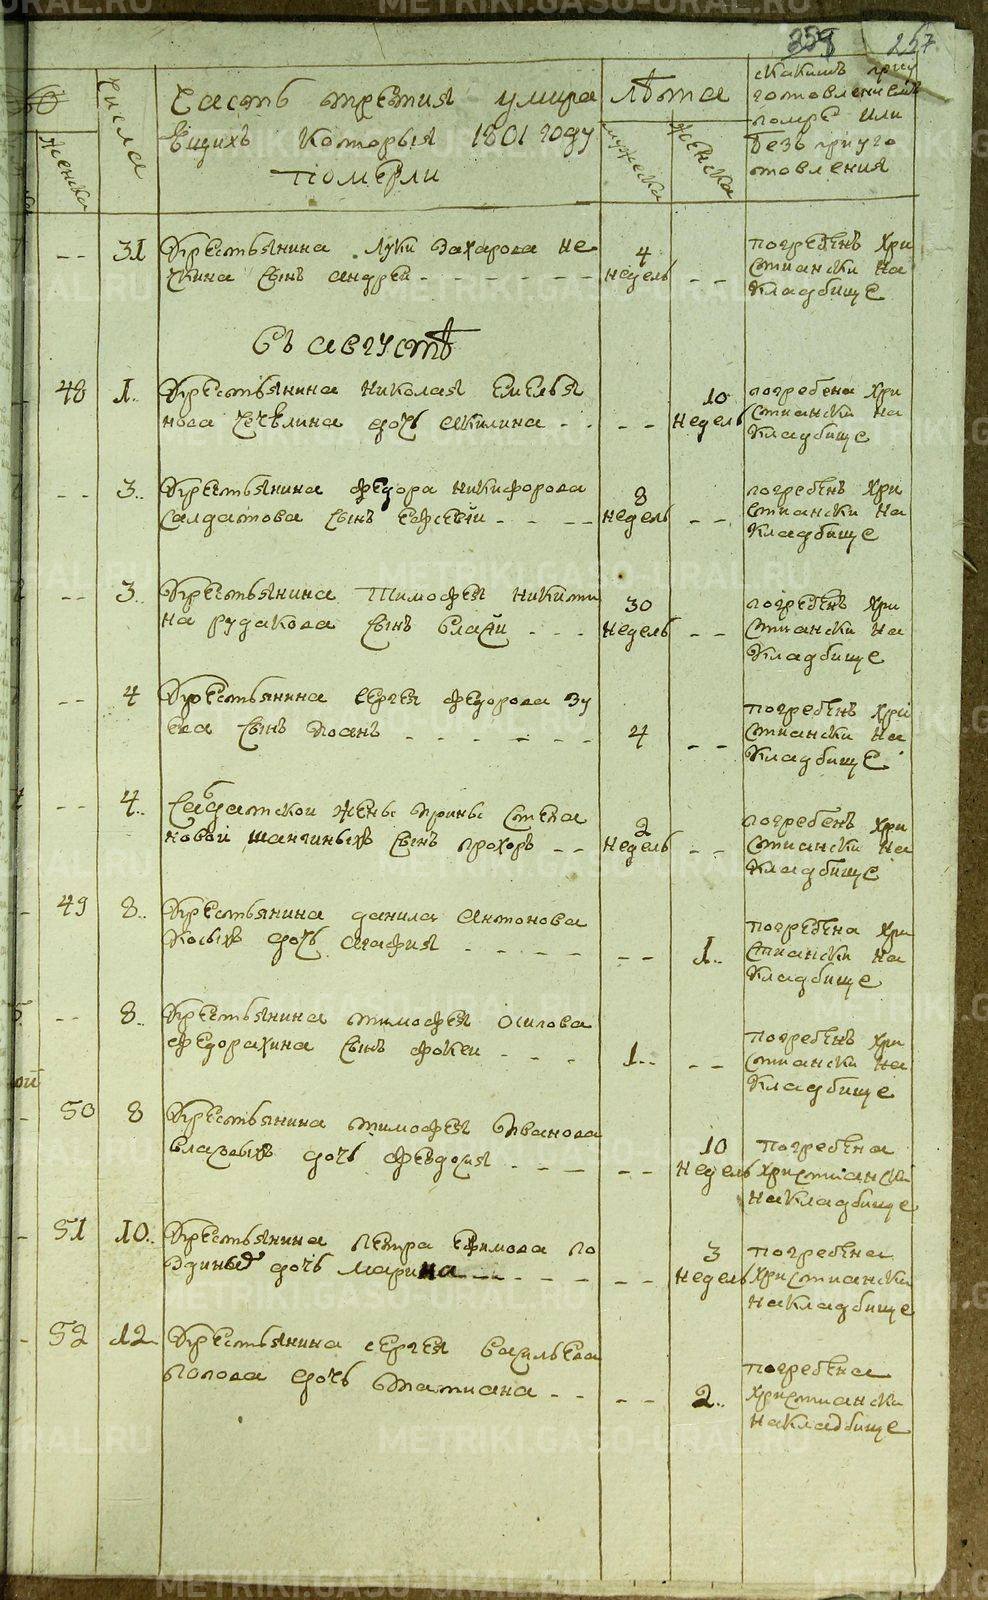 257
числа
женска
Часть третия умира
ющихъ которыя 1801 году
померли
лѣта
мужеска
женска
скакимъ приу
готовлениемъ
померъ или
безъ приуго
товления
31 Крестьянина Луки Захарова Не
чкина сынъ андрей 4 недель
погребенъ хри
стиански на
кладбище
Въ августѣ
48 1 Крестьянина николая Емелья
нова дочь акилина 10 недель
погребена хри
стиански на
кладбище
3 Крестьянина федора никифорова
Салдатова сынъ Евсевей 8 недель
погребенъ хри
стиански на
кладбище
3 Крестьянина тимофея никити
на рудакова сынъ власей 30 недель
погребенъ хри
стиански на
кладбище
4 Крестьянина сергея федорова зу
ева сынъ иоанъ 4
погребенъ хри
стиански на
кладбище
4 Салдатской жены ирины степа
новой шангиныхъ сынъ прохоръ 2 недель
погребенъ хри
стиански на
кладбище
49 8 Крестьянина данила антонова
косыхъ дочь агафия 1
погребена хри
стиански на
кладбище
8 Крестьянина тимофея осипова
федорахина сынъ фокеи 1
погребенъ хри
стиански на
кладбище
50 8 Крестьянина тимофея иванова
дочь февдосия 10 недель
погребена
христиански
на кладбище
51 10 Крестьянина петра ефимова по
дочь марина 3 недель
погребена
христиански
на кладбище
52 12 Крестьянина сергея васильева
попова дочь татиана 2
погребена
христиански
на кладбище
METRIKI.GASO-URAL.RU